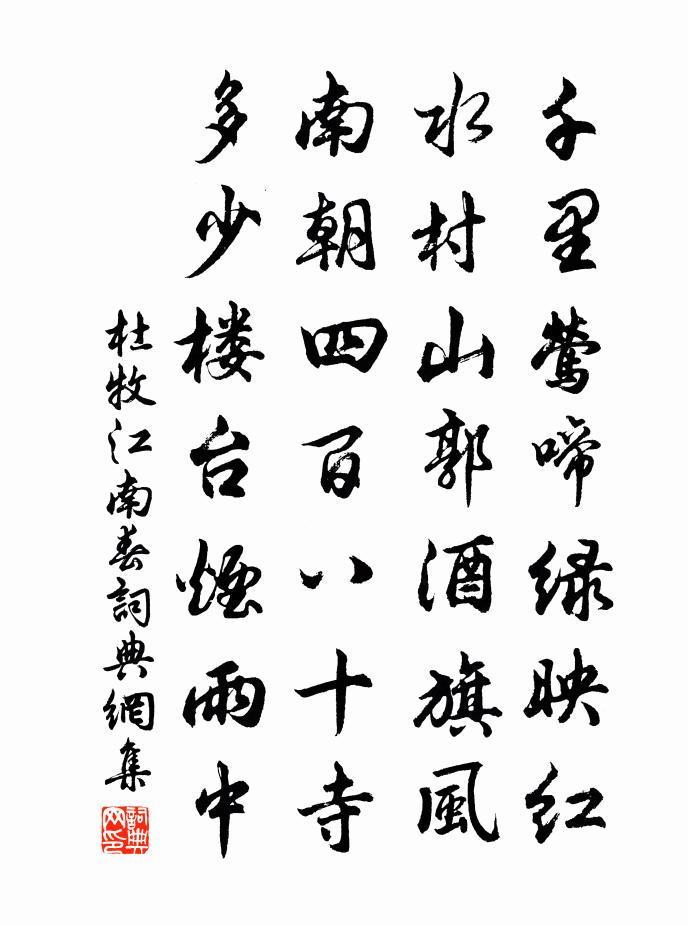 千里鶯啼緑映紅
水村山郭酒旗風
南朝四百八十寺
多少楼台煙雨中
杜牧江南春詞典網集
詞典网印